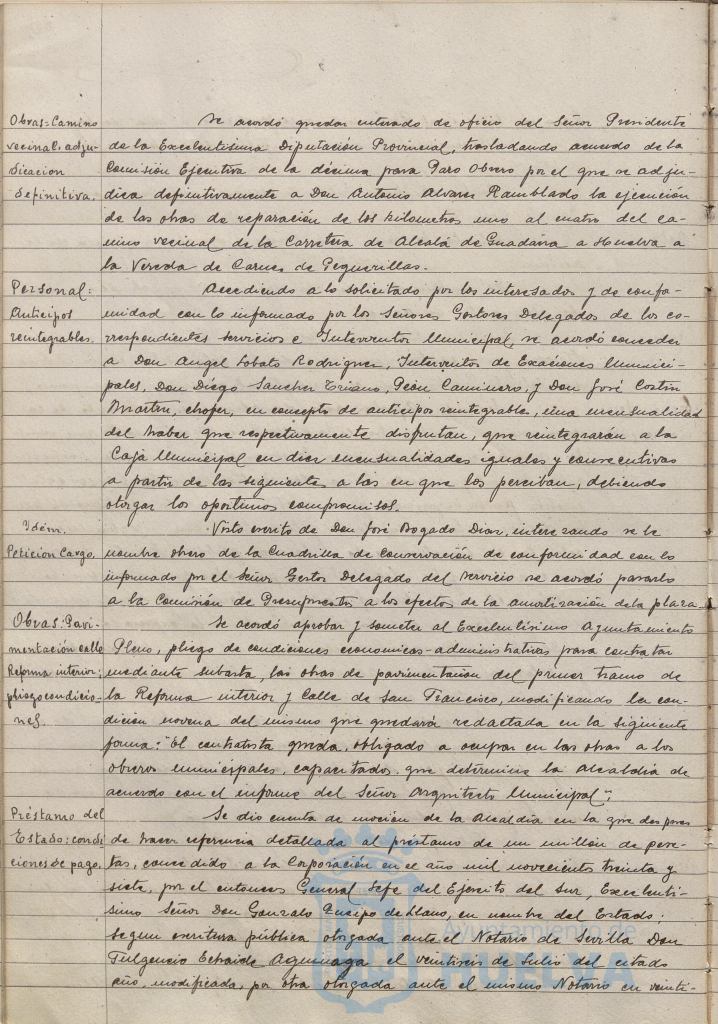 Obras: Camino
vecinal, adju-
dicacion
definitiva.
Se acordó quedar enterado de oficio del Señor Presidente
de la Excelentísima Diputación Provincial, trasladando acuerdo de la
Comisión Ejecutiva de la décima para Paro Obrero por el que se adju-
dica definitivamente a Don Antonio Alvarez Ramblado la ejecución
de las obras de reparación de los kilometros uno al cuatro del ca-
mino vecinal de la Carretera de Alcalá de Guadaira a Huelva a
la Vereda de Carnes de Peguerillas.
Personal:
Anticipos
reintegrables.
Accediendo a lo solicitado por los interesados y de confor-
midad con lo informado por los Señores Gestores Delegados de los co-
rrespondientes servicios e Interventor Municipal, se acordó conceder
a Don Angel Lobato Rodriguez, Interventor de Exaciones Munici-
pales, Don Diego Sanchez Triano, Peón Caminero, y Don José Costin
Martin, chofer, en concepto de anticipos reintegrables, una mensualidad
del haber que respectivamente disfrutan, que reintegrarán a la
Caja Municipal en diez mensualidades iguales y consecutivas
a partir de las siguiente a las en que los perciban, debiendo
otorgar los oportunos compromisos.
Idem.
Peticion Cargo.
Visto escrito de Don José Bogado Diaz, interezando se le
nombre obrero de la Cuadrilla de conservación de conformidad con lo
informado por el Señor Gestor Delegado del servicio se acordó pasarlo
a la Comisión de Presupuestos a los efectos de la amortización de la plaza.
Obras: Pavi-
mentación calle
Reforma interior;
pliego condicio-
nes.
Se acordó aprobar y someter al Excelentísimo Ayuntamiento
Pleno, pliego de condiciones economicas-administrativas para contratar
mediante subasta, las obras de pavimentacion del primer tramo de
la Reforma interior y Calle de San Francisco, modificando la con-
dicion novena del mismo que quedará redactada en la siguiente
forma: "El contratista queda, obligado a ocupar en las obras a los
obreros municipales, capacitados, que determine la Alcaldia de
acuerdo con el informe del Señor Arquitecto Municipal";
Préstamo del
Estado; condi-
ciones de pago.
Se dió cuenta de moción de la Alcaldia en la que despues
de hacer referencia detallada al préstamo de un millón de pese-
tas, concedido a la Corporación en el año mil novecientos treinta y
siete, por el entonces General Jefe del Ejercito del Sur, Excelenti-
simo Señor Don Gonzalo Queipo de Llano, en nombre del Estado;
segun escritura pública otorgada ante el Notario de Sevilla Don
Fulgencio Echaide Aguinaga el veintiseis de Julio del citado
año, modificada, por otra otorgada ante el mismo Notario en veinti-
Ayuntamiento de
HUELVA